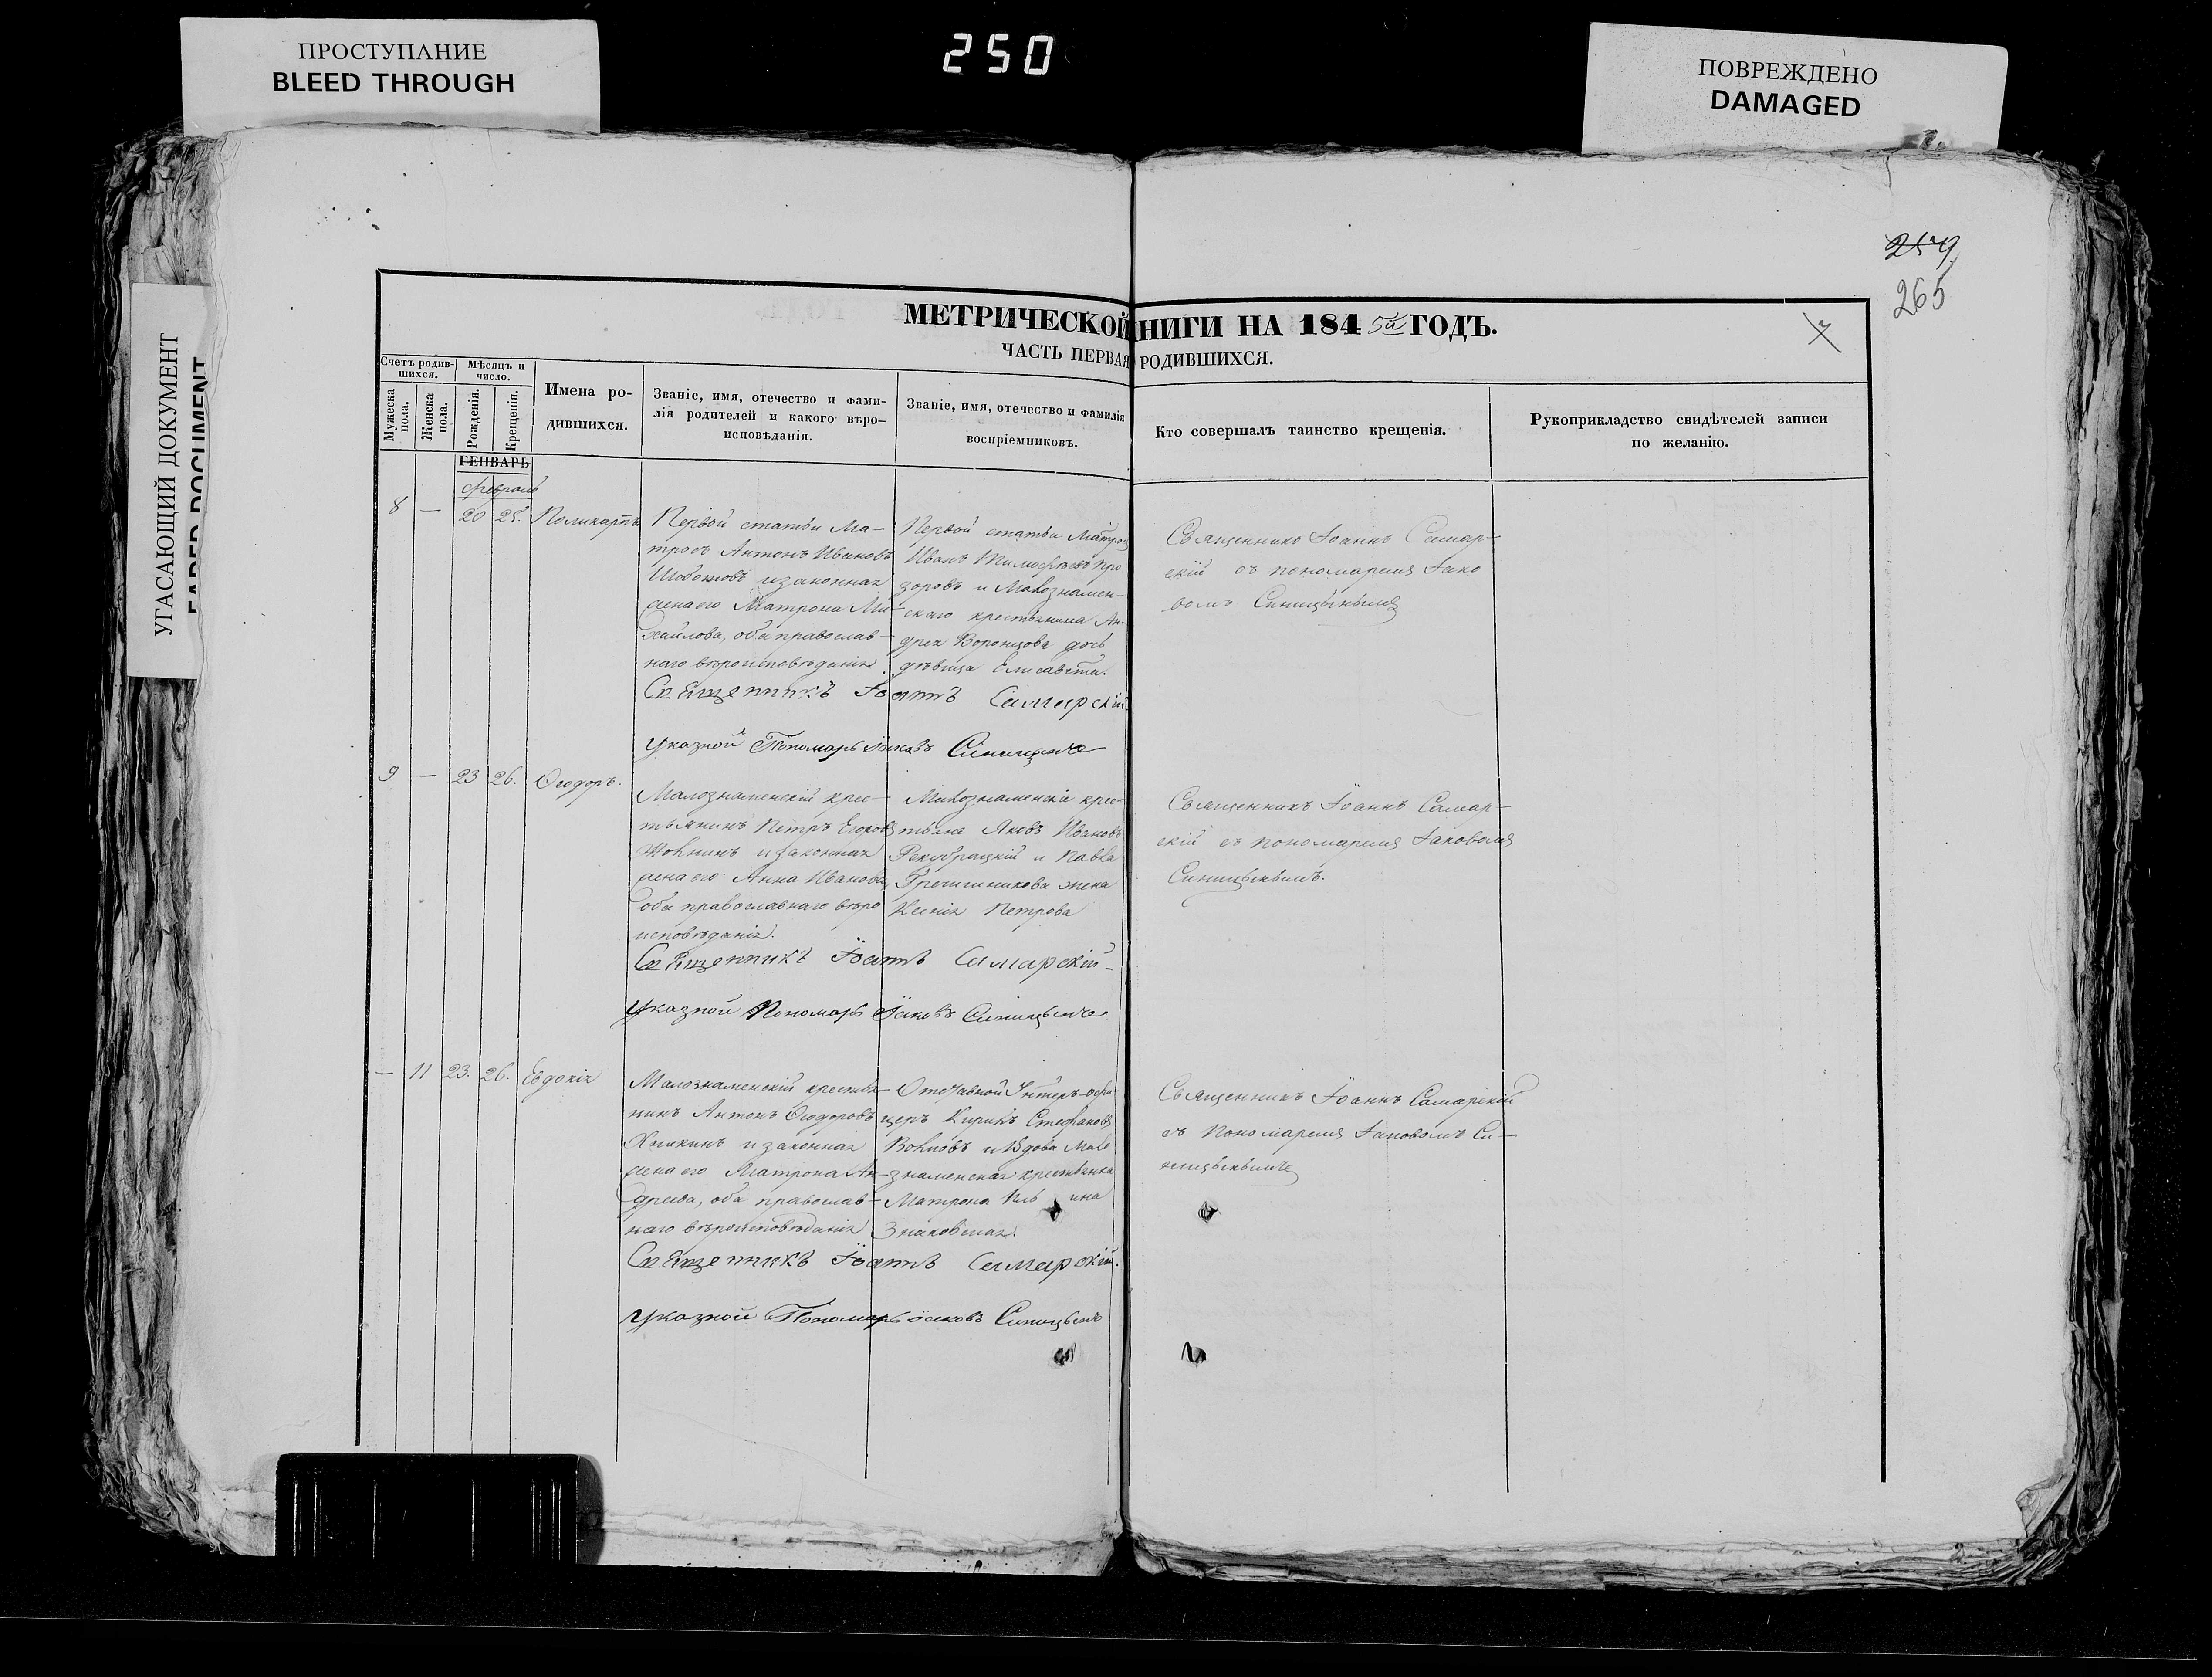 ПРОСТУПАНИЕ
BLEED THROUGH
250
ПОВРЕЖДЕНО
DAMAGED
УГАСАЮЩИЙ ДОКУМЕНТ
FADED DOCUMENT
259
265
МЕТРИЧЕСКОЙ КНИГИ НА 1845й ГОДЪ.
7
ЧАСТЬ ПЕРВАЯ РОДИВШИХСЯ.
Счетъ родив-
шихся.
Мужеска
пола.
Женска
пола.
Мѣсяцъ и
число.
Рожденія.
Крещенія.
Имена ро-
дившихся.
Званіе, имя, отечество и фами-
лія родителей и какого вѣро-
исповѣданія.
Званіе, имя, отечество и фамилія
воспріемниковъ.
Кто совершалъ таинство крещенія.
Рукоприкладство свидѣтелей записи
по желанію.
ГЕНВАРЬ
Февраль
8 — 20 25. Поликарпъ
Первой статьи Ма-
тросъ Антонъ Ивановъ
и законная
жена его Матрона Ми-
хайлова, оба православ-
наго вѣроисповѣданія.
Первой статьи Матросъ
Иванъ Тимофѣевъ Про
зоровъ и Малознамен-
скаго крестьянина Ан-
дрея Воронцова дочь
дѣвица Елисавета.
Священникъ Іоаннъ Самар-
скій съ пономаремъ Іако
вомъ Синицынымъ
Священникъ Іоаннъ Самарскій.
Указной Пономарь Іаковъ Синицынъ
9 — 23 26. Ѳеодоръ.
Малознаменскій крес-
тьянинъ Петръ Егоровъ
и законная
жена его Анна Иванова
оба православнаго вѣро
исповѣданія.
Малознаменскіе крес-
тьяне Яковъ Ивановъ
и Павла
жена
Ксенія Петрова
Священникъ Іоаннъ Самар-
скій съ пономаремъ Іаковомъ
Синицынымъ.
Священникъ Іоаннъ Самарскій
Указной Пономарь Іаковъ Синицынъ
— 11 23. 26. Евдокія
Малознаменскій крестья-
нинъ Антонъ Ѳеодоровъ
и законная
жена его Матрона Ан-
дреева, оба православ-
наго вѣроисповѣданія
Отставной Унтеръ-офи-
церъ Кирикъ Стефановъ
Волковъ и вдова Мало
знаменская крестьянка
Матрона Ильина
Священникъ Іоаннъ Самарскій
съ Пономаремъ Іаковомъ Си-
ницынымъ
Священникъ Іоаннъ Самарскій.
Указной Пономарь Іаковъ Синицынъ